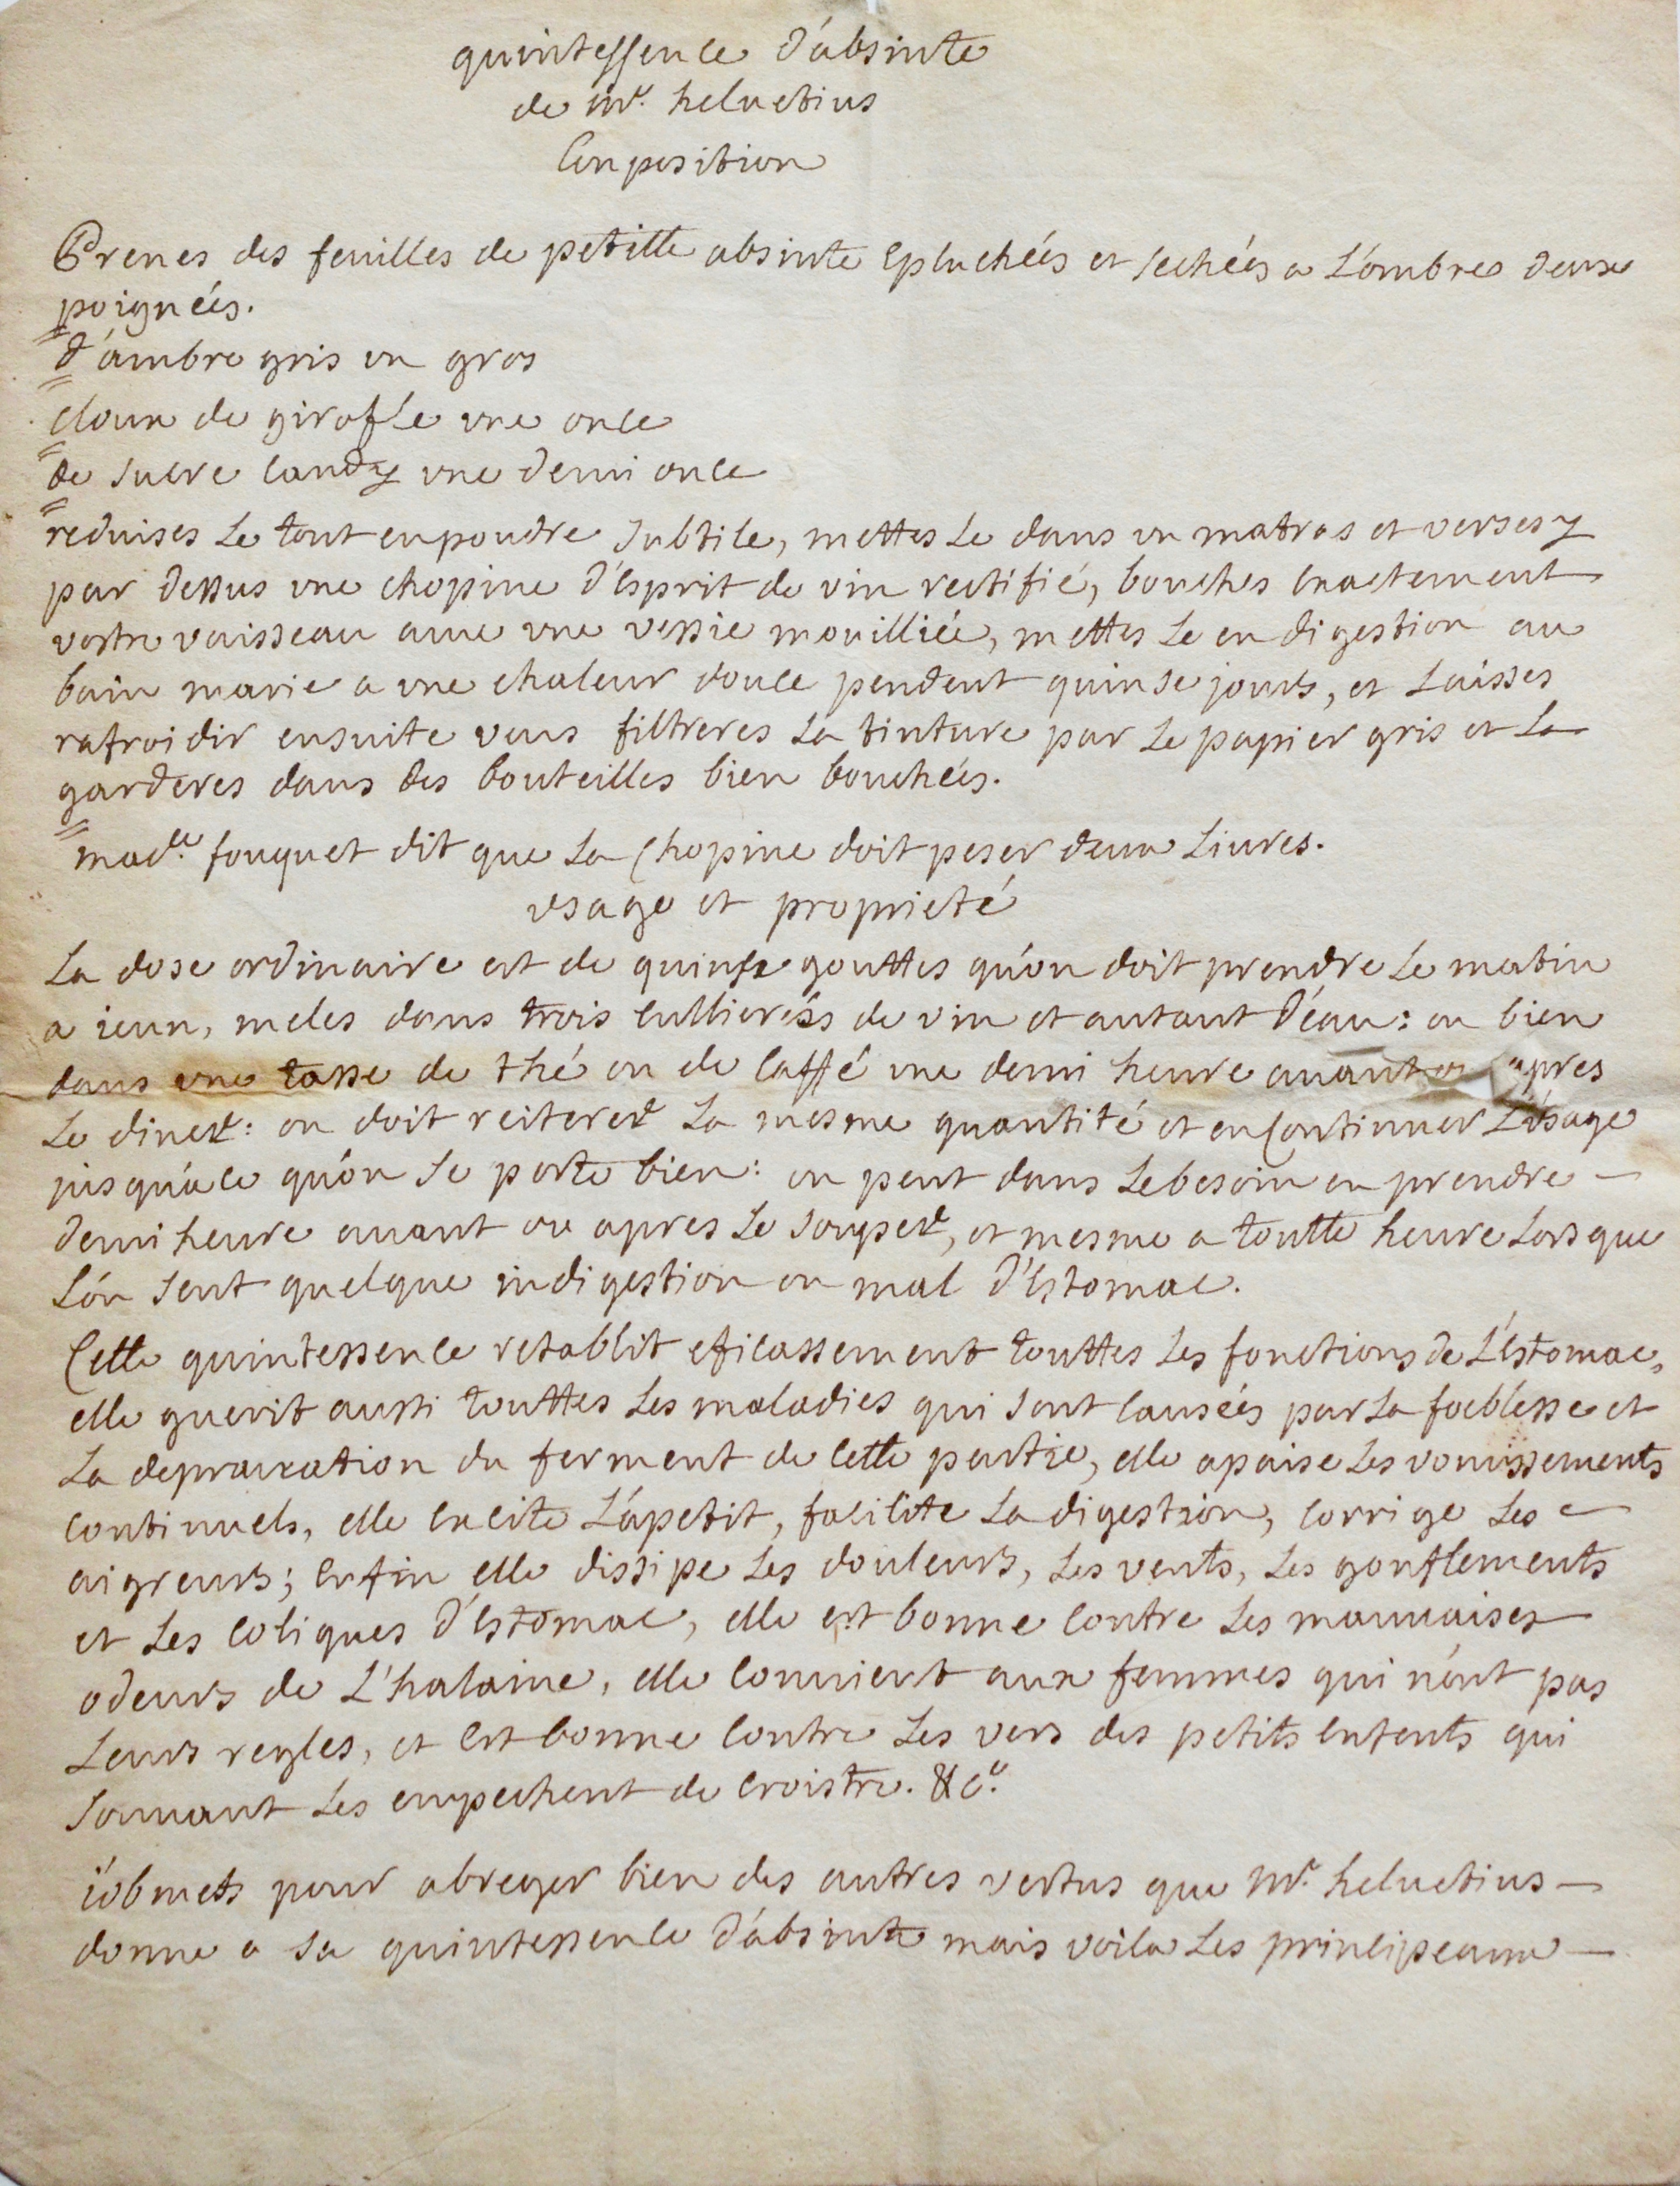 quintessence d'absinte
de mr. heluetius
Composition
Prenes des feuilles de petitte absinte epluchées et sechées a L'ombre deux
poignées.
d'ambre gris un gros
cloux de girofle une once
de sucre candy une demi once
reduises Le tout en poudre subtile, mettes Le dans un matras et verses y
par dessus une chopine d'esprit de vin rectifié, bouches exactement
vostre vaisseau auec une vessie mouilliée, mettes Le en digestion au
bain marie a une chaleur douce pendent quinse jours, et Laisses
rafroidir ensuite vous filtreres La tinture par Le papier gris et La
garderes dans des bouteilles bien bouchées.
made. fouquet dit que La Chopine doit peser deux Liures.
usage et proprieté
La dose ordinaire est de quinse gouttes qu'on doit prendre Le matin
a ieun, meles dans trois cullierés de vin et autant d'eau: ou bien
dans une tasse de thé ou de caffé une demi heure auant ou apres
Le diner: on doit reiterer La mesme quantité et en Continuer L'usage
jusqu'a ce qu'on se porte bien: on peut dans Le besoin en prendre
demi heure auant ou apres Le souper, et mesme a toutte heure Lors que
L'on sent quelque indigestion ou mal d'estomac.
Cette quintessence retablit eficassement touttes Les fonctions de L'estomac,
elle guerit aussi touttes Les maladies qui sont causées par La foeblesse et
La deprauation du ferment de cette partie, elle apaise Les vomissements
continuels, elle excite L'apetit, facilite La digestion, corrige Les
aigreurs; enfin elle dissipe Les douleurs, Les vents, Les gonflements
et Les coliques d'estomac, elle est bonne contre Les mauuaises
odeurs de L'halaine, elle conuient aux femmes qui n'ont pas
Leurs regles, et est bonne contre Les vers des petits enfents qui
souuant Les empechent de croistre. &ce.
i'obmets pour abreger bien des autres vertus que mr. heluetius
donne a sa quintessence d'absinte mais voila Les principeaux